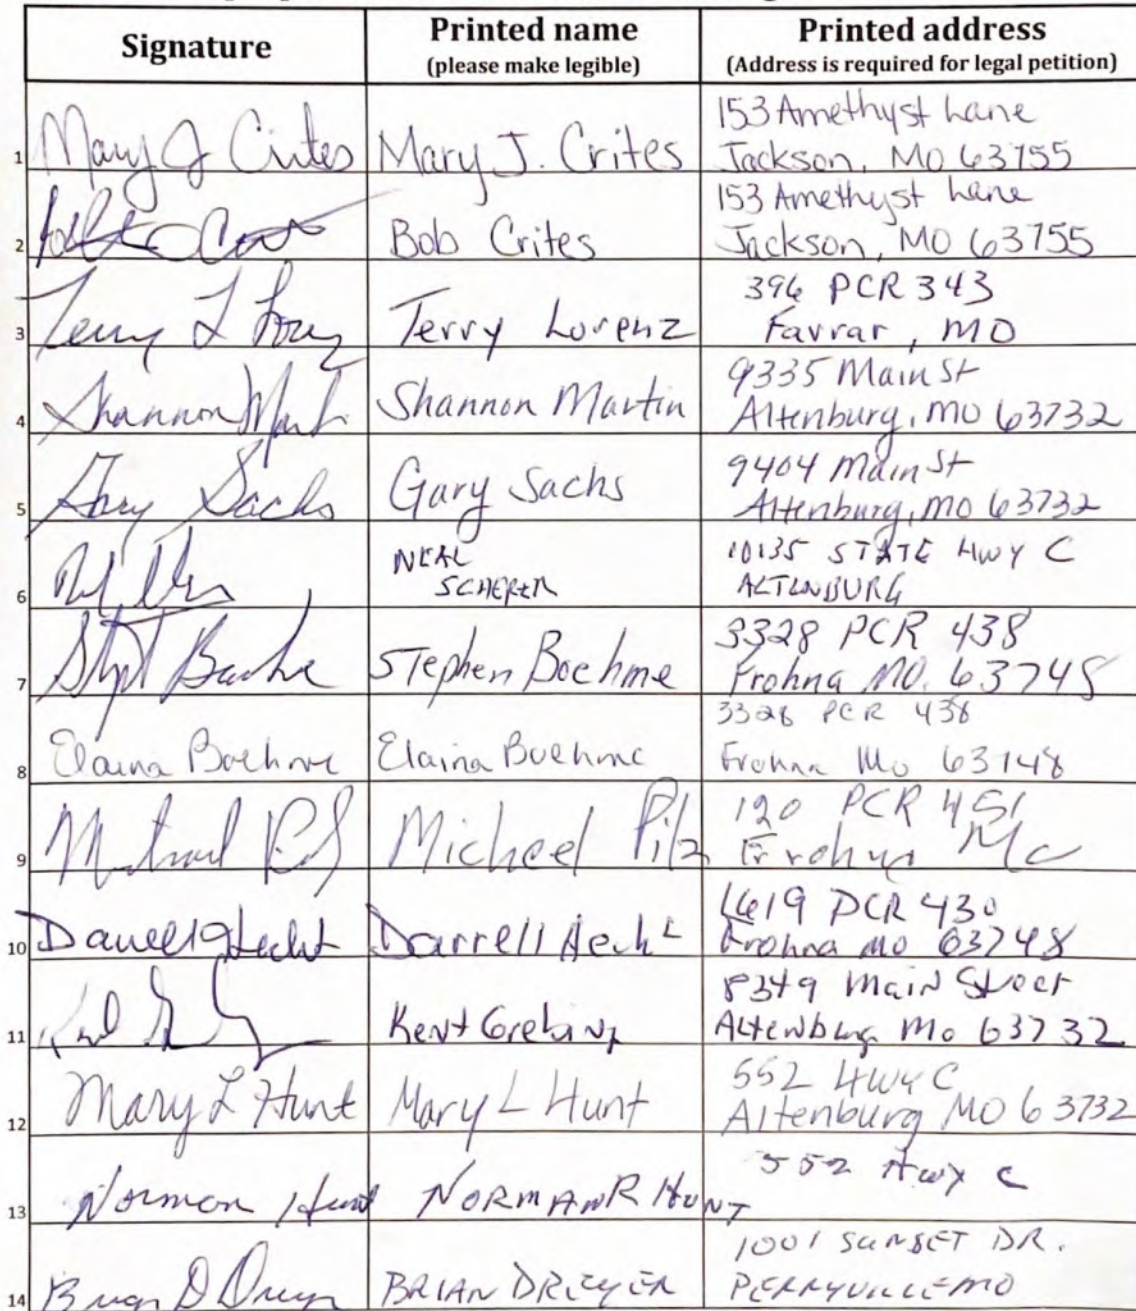 Signature
Printed name
(please make legible)
Printed address
(Address is required for legal petition)
1 Mary J Crites Mary J. Crites 153 Amethyst Lane
Jackson, MO 63755
2 Bob Crites 153 Amethyst Lane
Jackson, MO 63755
3 Terry L Lorenz Terry Lorenz 396 PCR 343
Farrar, MO
4 Shannon Martin Shannon Martin 9335 Main St
Altenburg, MO 63732
5 Gary Sachs Gary Sachs 9404 Main St
Altenburg, MO 63732
6 NEAL
SCHERER 10135 STATE HWY C
ALTENBURG
7 Stephen Boehme 3328 PCR 438
Frohna MO. 63748
8 Elaina Boehme Elaina Boehme 3328 PCR 438
Frohna Mo 63748
9 Michael Pilz 120 PCR 451
Frohna Mo
10 Darrell Hecht Darrell Hecht 1619 PCR 430
Frohna mo 63748
11 Kent Grebing 8349 Main Street
Altenburg Mo 63732
12 Mary L Hunt Mary L Hunt 552 Hwy C
Altenburg MO 63732
13 Norman Hunt NORMAN R HUNT 552 Hwy C
14 Brian D Dreyer BRIAN DREYER 1001 SUNSET DR.
PERRYVILLE MO